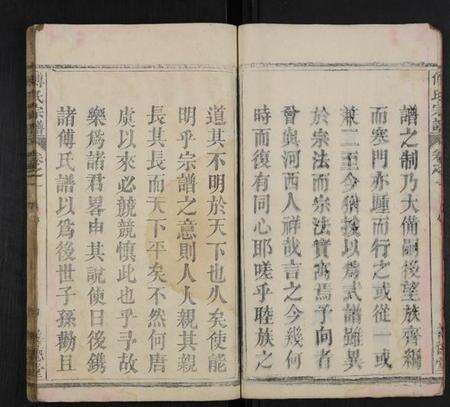 譜之制乃大備嗣後望族齊編
而寒門亦踵而行之或從一或
兼二至今猶援以為式譜雖異
於宗法而宗法實寓焉予向者
曾與河西人祥哉言之今幾何
時而復有同心耶嗟乎睦族之
道其不明於天下也久矣使能
明乎宗譜之意則人人親其親
長其長而天下平矣不然何唐
虞以來必兢兢慎此也乎予故
樂為諸君畧由其說使日後鐫
諸傅氏譜以為後世子孫勸且
傅氏宗譜
卷之